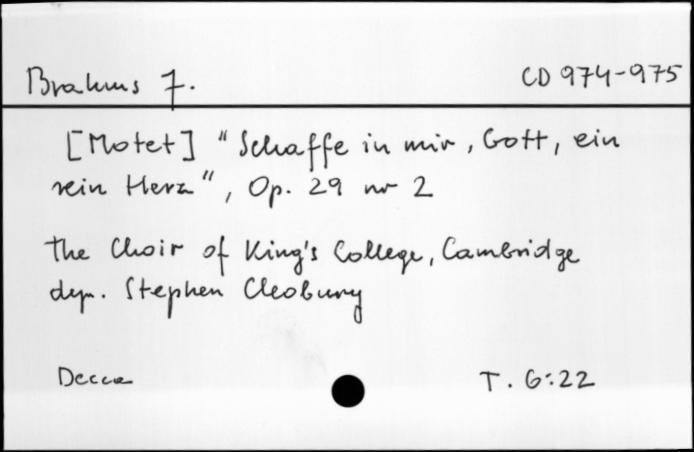 Brahms J.
CD 974-975
[Motet] "Schaffe in mir, Gott, ein
rein Herz", Op. 29 nr 2
The Choir of King's College, Cambridge
dyr. Stephen Cleobury
Decca
T. 6:22